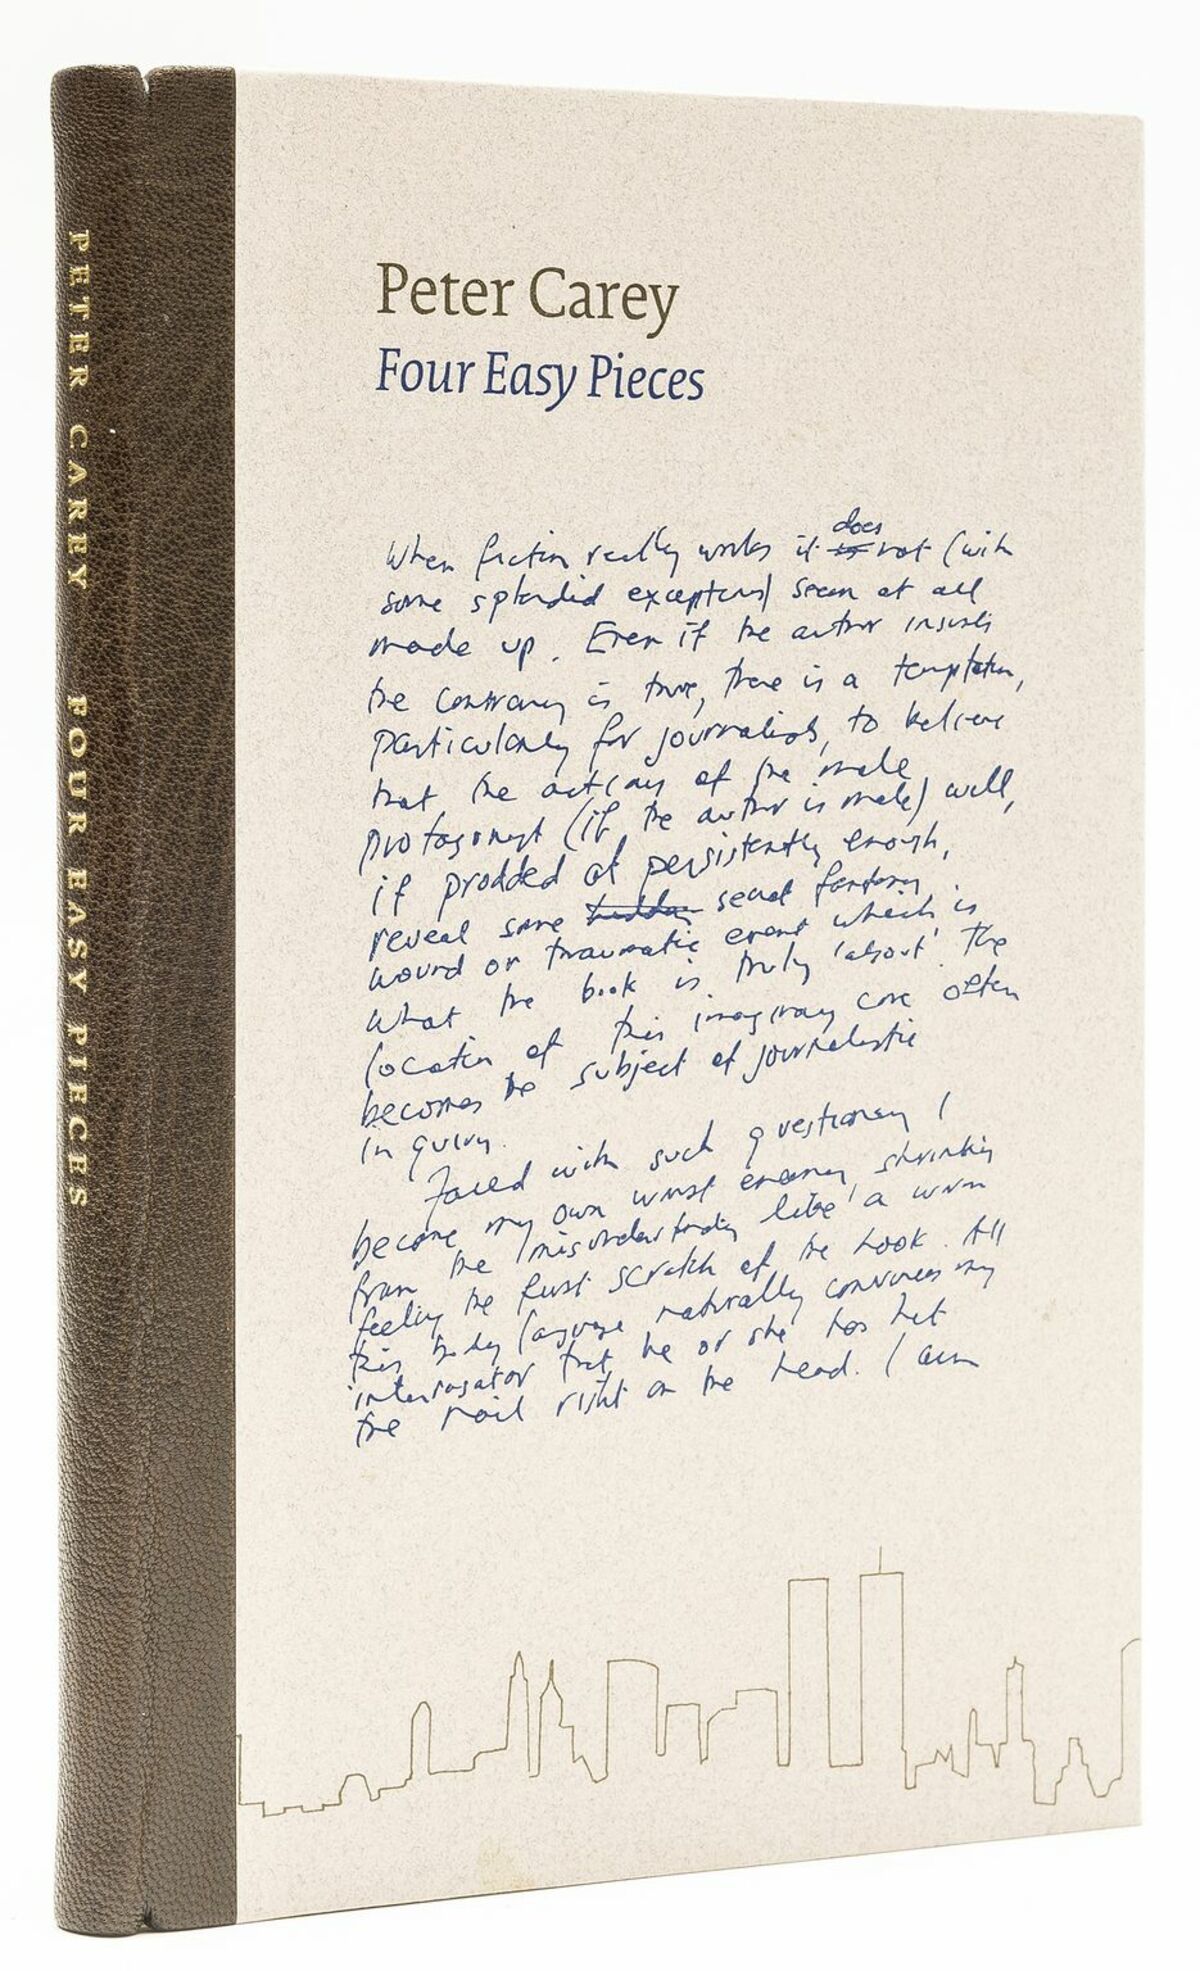 PETER CAREY FOUR EASY PIECES
Peter Carey
Four Easy Pieces
does
When fiction really works it is not (with
some splendid exceptions) seem at all
made up. Even if the author insists
the contrary is true, there is a temptation,
particularly for journalists, to believe
that the actions of the male
protagonist (if the author is male) will,
if prodded at persistently enough,
reveal some hidden secret fantasy,
wound or traumatic event which is
what the book is truly 'about'. The
location of this imaginary core often
becomes the subject of journalistic
inquiry.
Faced with such questioning I
become my own worst enemy, shrinking
from the misunderstanding like a worm
feeling the first scratch of the hook. All
this body language naturally convinces my
interrogator that he or she has hit
the nail right on the head. I am